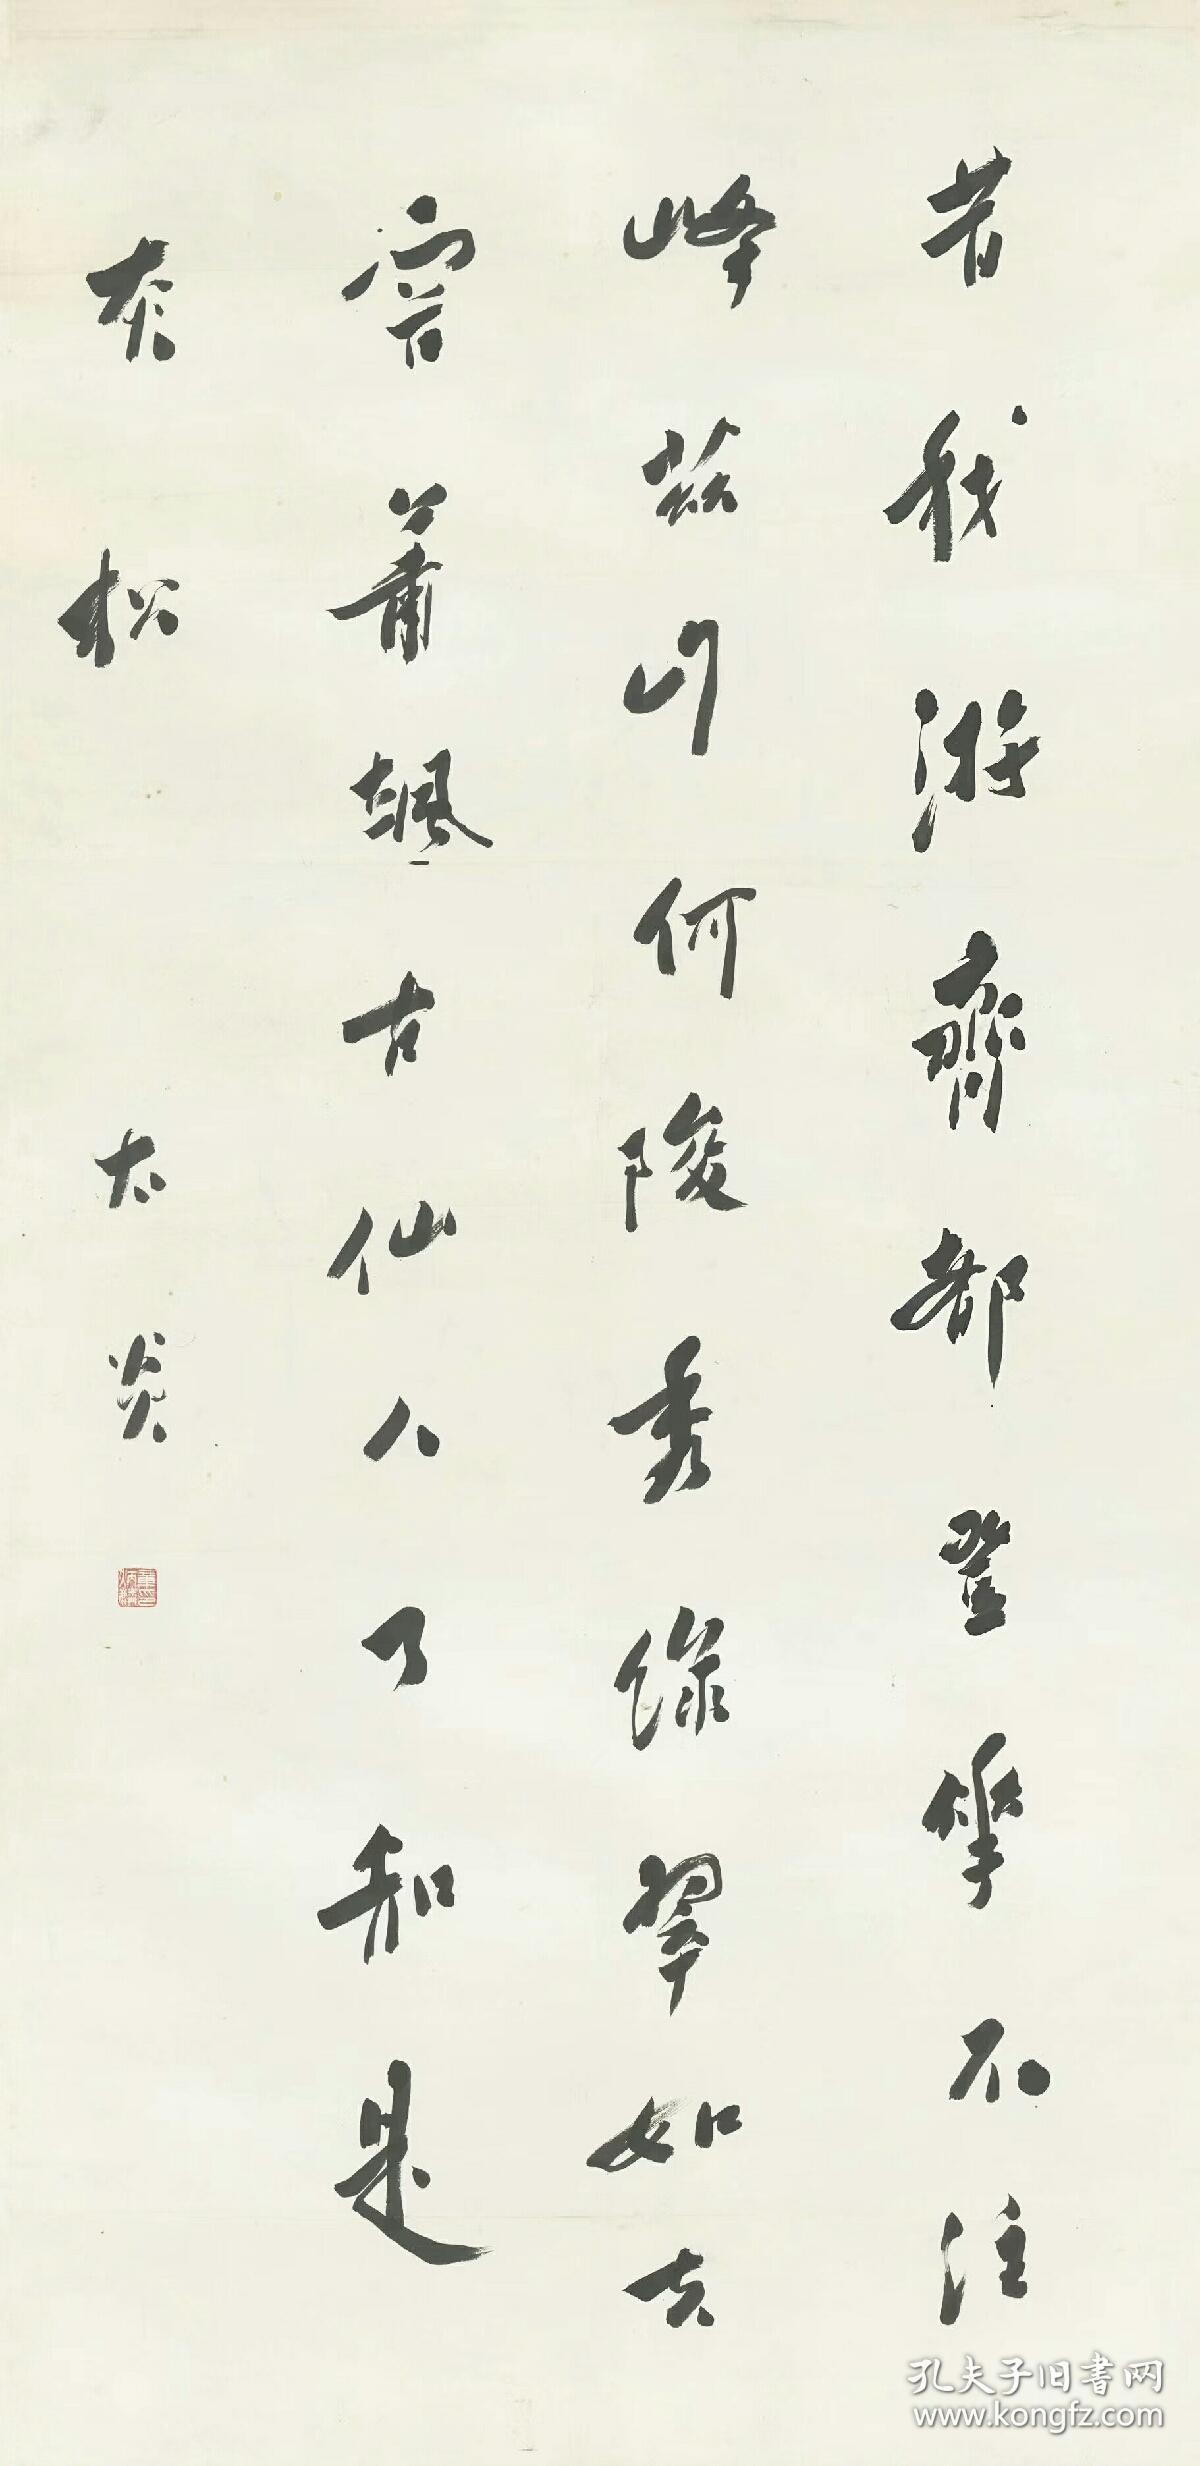 昔我游齊都登華不注
峰茲山何陵秀綠翠如夫
容蕭颯古仙人了知是
赤松
太炎
孔夫子旧書网
www.kongfz.com